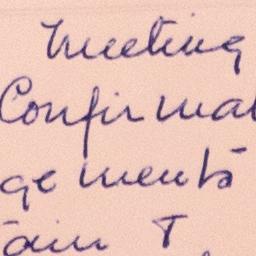 meeting
Confirmat
gements
ain T